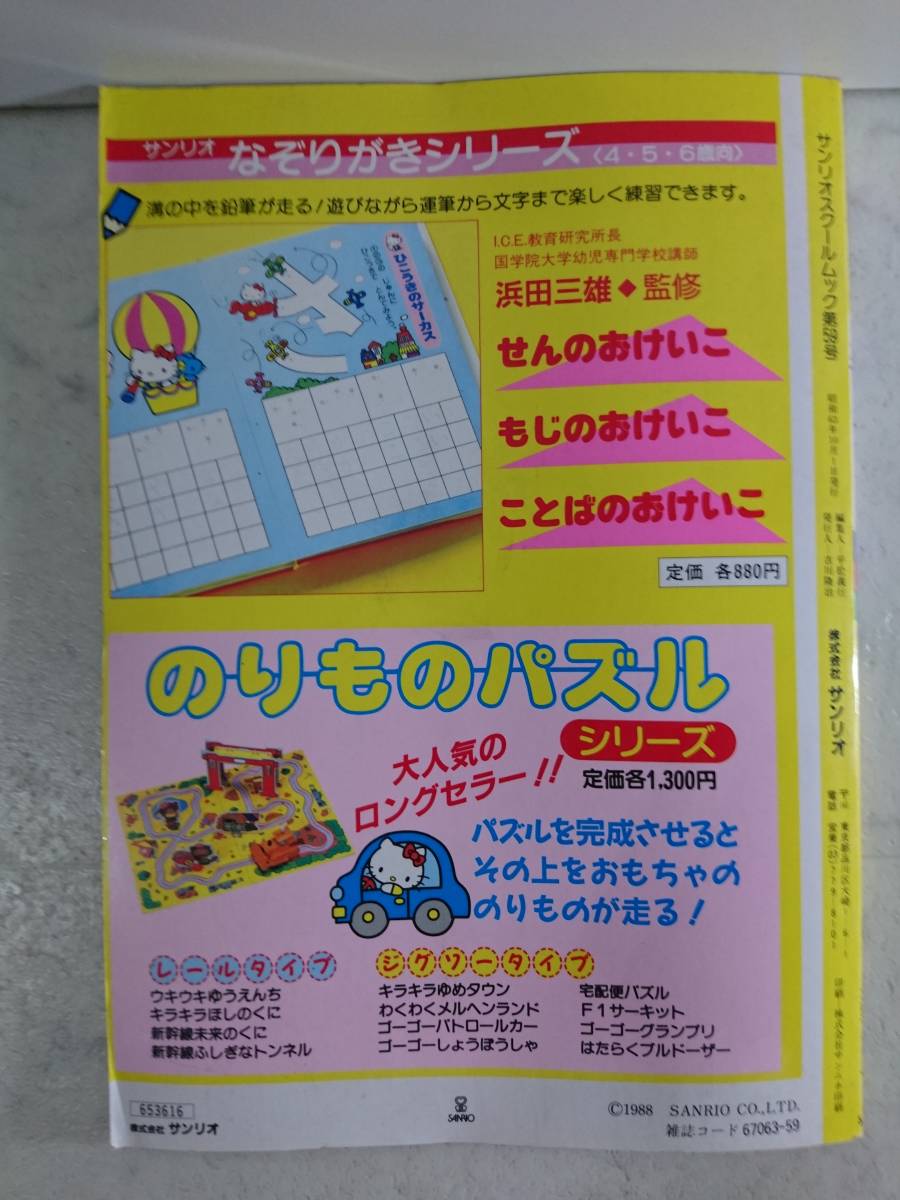 サンリオ なぞりがきシリーズ〈4・5・6歳向〉
溝の中を鉛筆が走る！遊びながら運筆から文字まで楽しく練習できます。
ひこうきのサーカス
I.C.E.教育研究所長
国学院大学幼児専門学校講師
浜田三雄◆監修
せんのおけいこ
もじのおけいこ
ことばのおけいこ
定価 各880円
のりものパズル
シリーズ
定価各1,300円
大人気の
ロングセラー!!
パズルを完成させると
その上をおもちゃの
のりものが走る！
レールタイプ
ウキウキゆうえんち
キラキラほしのくに
新幹線未来のくに
新幹線ふしぎなトンネル
ジグソータイプ
キラキラゆめタウン
わくわくメルヘンランド
ゴーゴーパトロールカー
ゴーゴーしょうぼうしゃ
宅配便パズル
F1サーキット
ゴーゴーグランプリ
はたらくブルドーザー
653616
株式会社 サンリオ
SANRIO
©1988 SANRIO CO.,LTD.
雑誌コード 67063-59
サンリオスクールムック第59号
昭和63年10月1日発行
株式会社 サンリオ